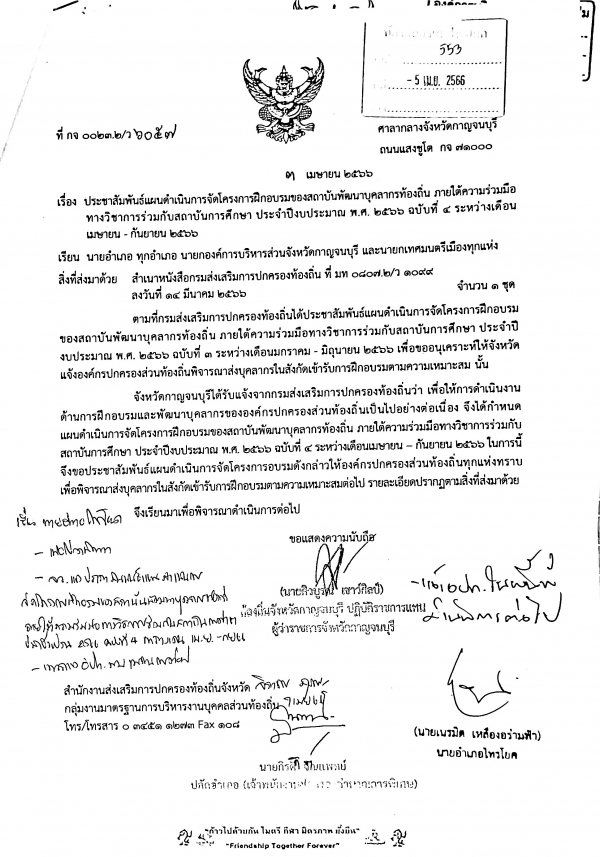 ๕๕๓
- 5 เม.ย. 2566
ที่ กจ ๐๐๒๓.๒/ว ๖๐๕๗
ศาลากลางจังหวัดกาญจนบุรี
ถนนแสงชูโต กจ ๗๑๐๐๐
๓ เมษายน ๒๕๖๖
เรื่อง ประชาสัมพันธ์แผนดำเนินการจัดโครงการฝึกอบรมของสถาบันพัฒนาบุคลากรท้องถิ่น ภายใต้ความร่วมมือ
ทางวิชาการร่วมกับสถาบันการศึกษา ประจำปีงบประมาณ พ.ศ. ๒๕๖๖ ฉบับที่ ๔ ระหว่างเดือน
เมษายน - กันยายน ๒๕๖๖
เรียน นายอำเภอ ทุกอำเภอ นายกองค์การบริหารส่วนจังหวัดกาญจนบุรี และนายกเทศมนตรีเมืองทุกแห่ง
สิ่งที่ส่งมาด้วย สำเนาหนังสือกรมส่งเสริมการปกครองท้องถิ่น ที่ มท ๐๘๐๗.๒/ว ๑๐๙๙
ลงวันที่ ๑๔ มีนาคม ๒๕๖๖ จำนวน ๑ ชุด
ตามที่กรมส่งเสริมการปกครองท้องถิ่นได้ประชาสัมพันธ์แผนดำเนินการจัดโครงการฝึกอบรม
ของสถาบันพัฒนาบุคลากรท้องถิ่น ภายใต้ความร่วมมือทางวิชาการร่วมกับสถาบันการศึกษา ประจำปี
งบประมาณ พ.ศ. ๒๕๖๖ ฉบับที่ ๓ ระหว่างเดือนมกราคม - มิถุนายน ๒๕๖๖ เพื่อขออนุเคราะห์ให้จังหวัด
แจ้งองค์กรปกครองส่วนท้องถิ่นพิจารณาส่งบุคลากรในสังกัดเข้ารับการฝึกอบรมตามความเหมาะสม นั้น
จังหวัดกาญจนบุรีได้รับแจ้งจากกรมส่งเสริมการปกครองท้องถิ่นว่า เพื่อให้การดำเนินงาน
ด้านการฝึกอบรมและพัฒนาบุคลากรขององค์กรปกครองส่วนท้องถิ่นเป็นไปอย่างต่อเนื่อง จึงได้กำหนด
แผนดำเนินการจัดโครงการฝึกอบรมของสถาบันพัฒนาบุคลากรท้องถิ่น ภายใต้ความร่วมมือทางวิชาการร่วมกับ
สถาบันการศึกษา ประจำปีงบประมาณ พ.ศ. ๒๕๖๖ ฉบับที่ ๔ ระหว่างเดือนเมษายน – กันยายน ๒๕๖๖ ในการนี้
จึงขอประชาสัมพันธ์แผนดำเนินการจัดโครงการอบรมดังกล่าวให้องค์กรปกครองส่วนท้องถิ่นทุกแห่งทราบ
เพื่อพิจารณาส่งบุคลากรในสังกัดเข้ารับการฝึกอบรมตามความเหมาะสมต่อไป รายละเอียดปรากฏตามสิ่งที่ส่งมาด้วย
จึงเรียนมาเพื่อพิจารณาดำเนินการต่อไป
เรียน นายอำเภอไทรโยค
ขอแสดงความนับถือ
ท้องถิ่นจังหวัดกาญจนบุรี ปฏิบัติราชการแทน
ผู้ว่าราชการจังหวัดกาญจนบุรี
สำนักงานส่งเสริมการปกครองท้องถิ่นจังหวัด
กลุ่มงานมาตรฐานการบริหารงานบุคคลส่วนท้องถิ่น
โทร/โทรสาร ๐ ๓๔๕๑ ๑๒๗๓ Fax ๑๐๘
(นายเนรมิต เหลืองอร่ามฟ้า)
นายอำเภอไทรโยค
"ก้าวไปด้วยกัน ไมตรี กีฬา มิตรภาพ ยั่งยืน"
"Friendship Together Forever"